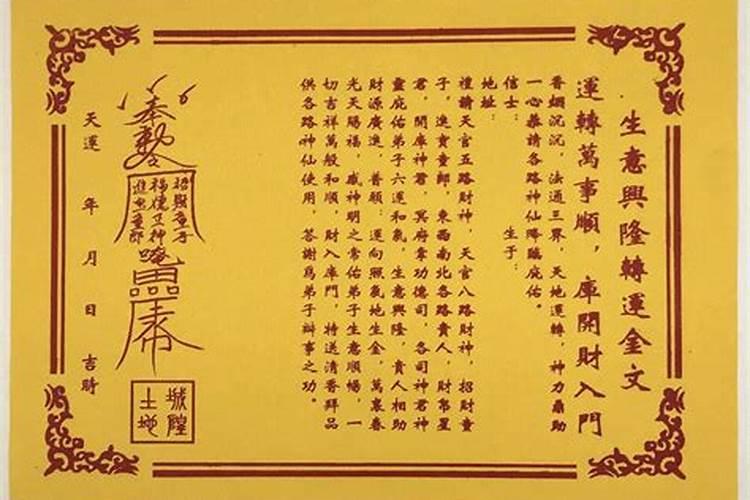 生意興隆轉運金文
運轉萬事順,庫開財入門
香烟沉沉,法通三界,天地運轉,神力鼎助
一心恭請各路神仙降臨庇佑。
信士:　生于:
地址:
禮請天官五路財神,天官八路財神,招財童
子,進寶童郎,東西南北各路貴人,財帛星
君,開庫神君,冥府掌功德司,各司神君神
靈庇佑弟子六運和氣,生意興隆,貴人相助
財源廣進,普願:運向照氣地生金,萬裏春
光天賜福,感神明之常佑弟子生意順暢,一
切吉祥萬般和順,財入庫門,特送清香拜品
供各路神仙使用,答謝爲弟子辦事之功。
奉勅令
招財童子
福德正神
進寶童郎
城隍
土地
天運　年　月　日　吉時